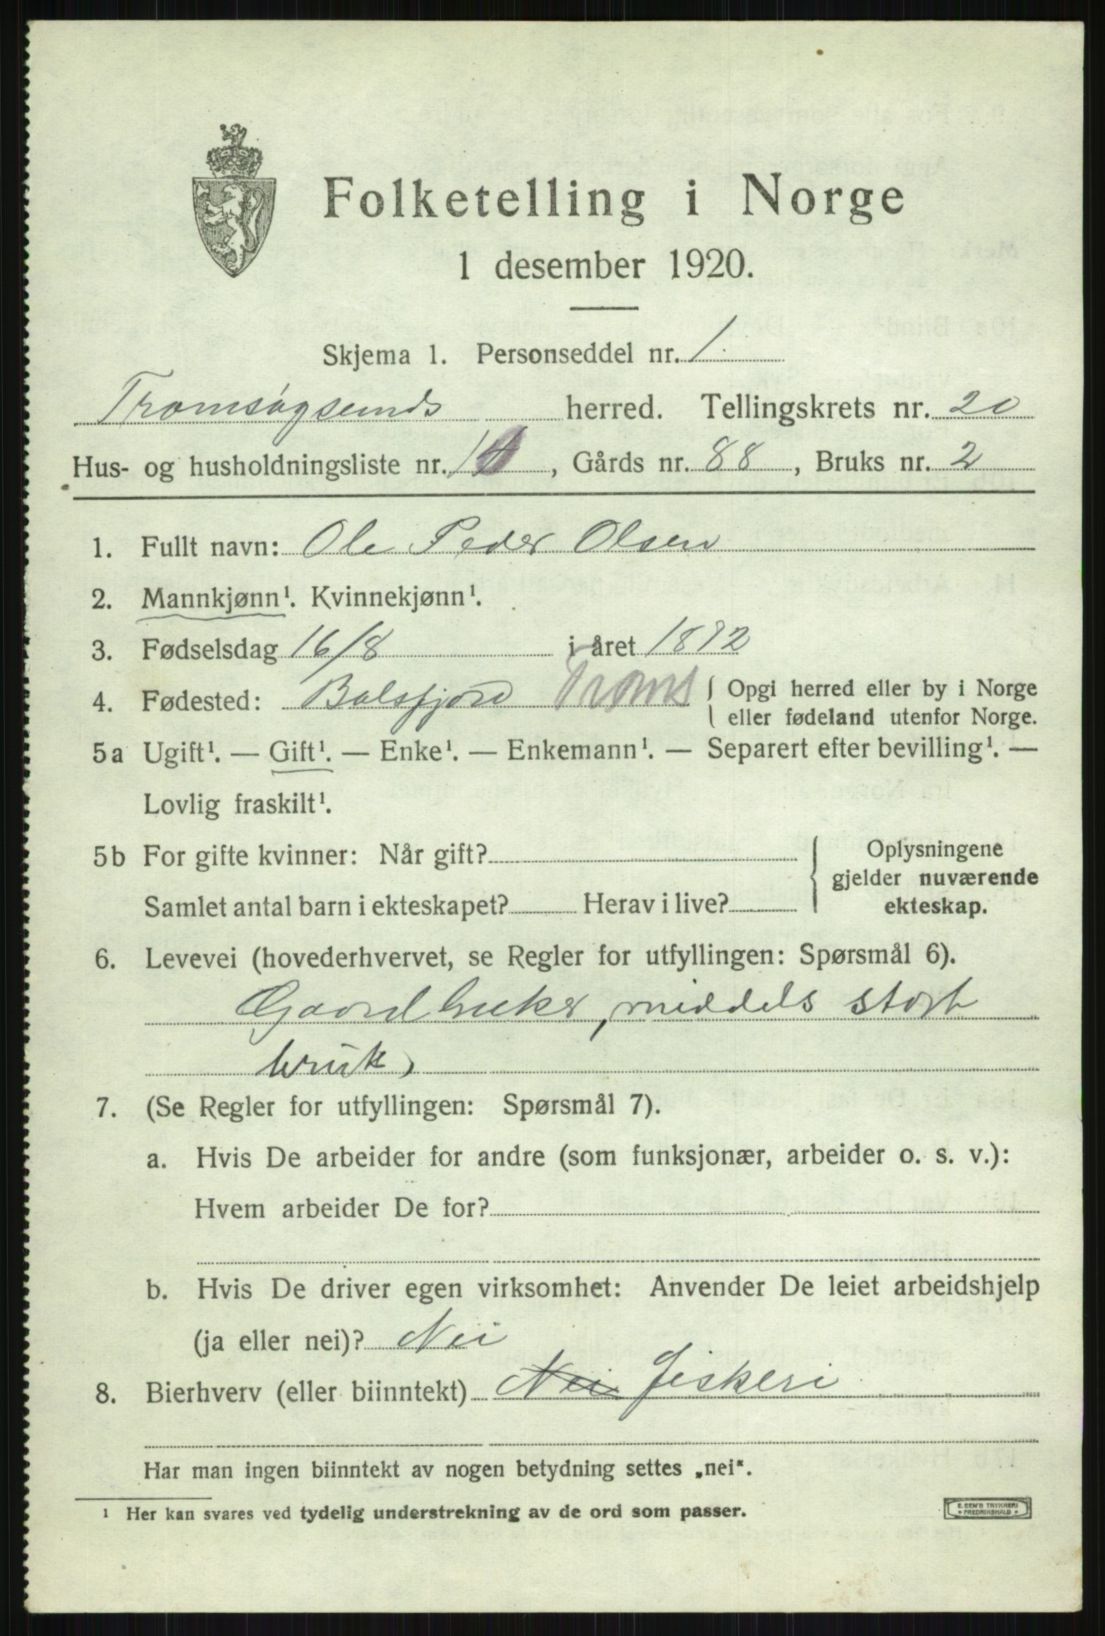 Folketelling i Norge
1 desember 1920.
Skjema 1. Personseddel nr. 1.
Tromsøysunds herred. Tellingskrets nr. 20
Hus- og husholdningsliste nr. 1 , Gårds nr. 88 , Bruks nr. 2
1. Fullt navn: Ole Peder Olsen
2. Mannkjønn¹. Kvinnekjønn¹.
3. Fødselsdag 16/8 i året 1892
4. Fødested: Balsfjord Troms { Opgi herred eller by i Norge
eller fødeland utenfor Norge.
5a Ugift¹. — Gift¹. — Enke¹. — Enkemann¹. — Separert efter bevilling¹. —
Lovlig fraskilt¹.
5b For gifte kvinner: Når gift?
Samlet antal barn i ekteskapet? Herav i live?
Oplysningene
gjelder nuværende
ekteskap.
6. Levevei (hovederhvervet, se Regler for utfyllingen: Spørsmål 6).
Gaardbruker, middels stort
bruk,
7. (Se Regler for utfyllingen: Spørsmål 7).
a. Hvis De arbeider for andre (som funksjonær, arbeider o. s. v.):
Hvem arbeider De for?
b. Hvis De driver egen virksomhet: Anvender De leiet arbeidshjelp
(ja eller nei)? Nei
8. Bierhverv (eller biinntekt) Nei Fiskeri
Har man ingen biinntekt av nogen betydning settes „nei".
¹ Her kan svares ved tydelig understrekning av de ord som passer.
E. SEM'S TRYKKERI
• FREDRIKSHALD •